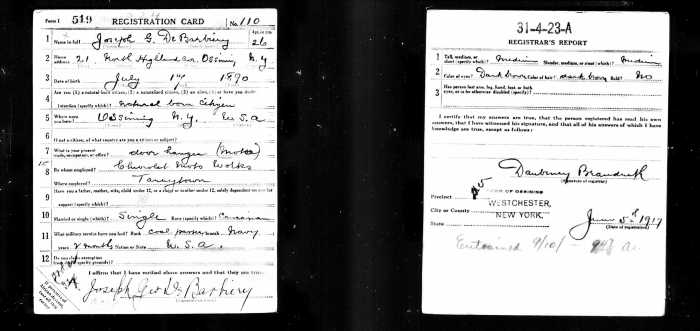 Form 1 519 REGISTRATION CARD No. 110
1 Name in full Joseph G. De Barbiery Age, in yrs 26
2 Home address 21 North Highland av. Ossining N.Y.
3 Date of birth July 1890
4 Are you (1) a natural-born citizen, (2) a naturalized citizen, (3) an alien, (4) or have you declared your intention (specify which)? Natural born citizen
5 Where were you born? Ossining N.Y. U.S.A.
6 If not a citizen, of what country are you a citizen or subject?
7 What is your present trade, occupation, or office? door hanger (motor)
8 By whom employed? Chevrolet Moto Works
Where employed? Tarrytown
9 Have you a father, mother, wife, child under 12, or a sister or brother under 12, solely dependent on you for support (specify which)?
10 Married or single (which)? Single Race (specify which)? Caucasian
11 What military service have you had? Rank coal passer branch Navy
years 2 months Nation or State U.S.A.
12 Do you claim exemption from draft (specify grounds)?
I affirm that I have verified above answers and that they are true.
Joseph Geo De Barbiery
31-4-23-A
REGISTRAR'S REPORT
1 Tall, medium, or short (specify which)? Medium Slender, medium, or stout (which)? Medium
2 Color of eyes? Dark brown Color of hair? dark brown Bald? No
3 Has person lost arm, leg, hand, foot, or both eyes, or is he otherwise disabled (specify)?
I certify that my answers are true, that the person registered has read his own
answers, that I have witnessed his signature, and that all of his answers of which I have
knowledge are true, except as follows:
Daubeney Brandreth
(Signature of registrar)
Precinct OF OSSINING
City or County WESTCHESTER,
State NEW YORK.
June 5th 1917
(Date of registration)
Entrained 9/10/